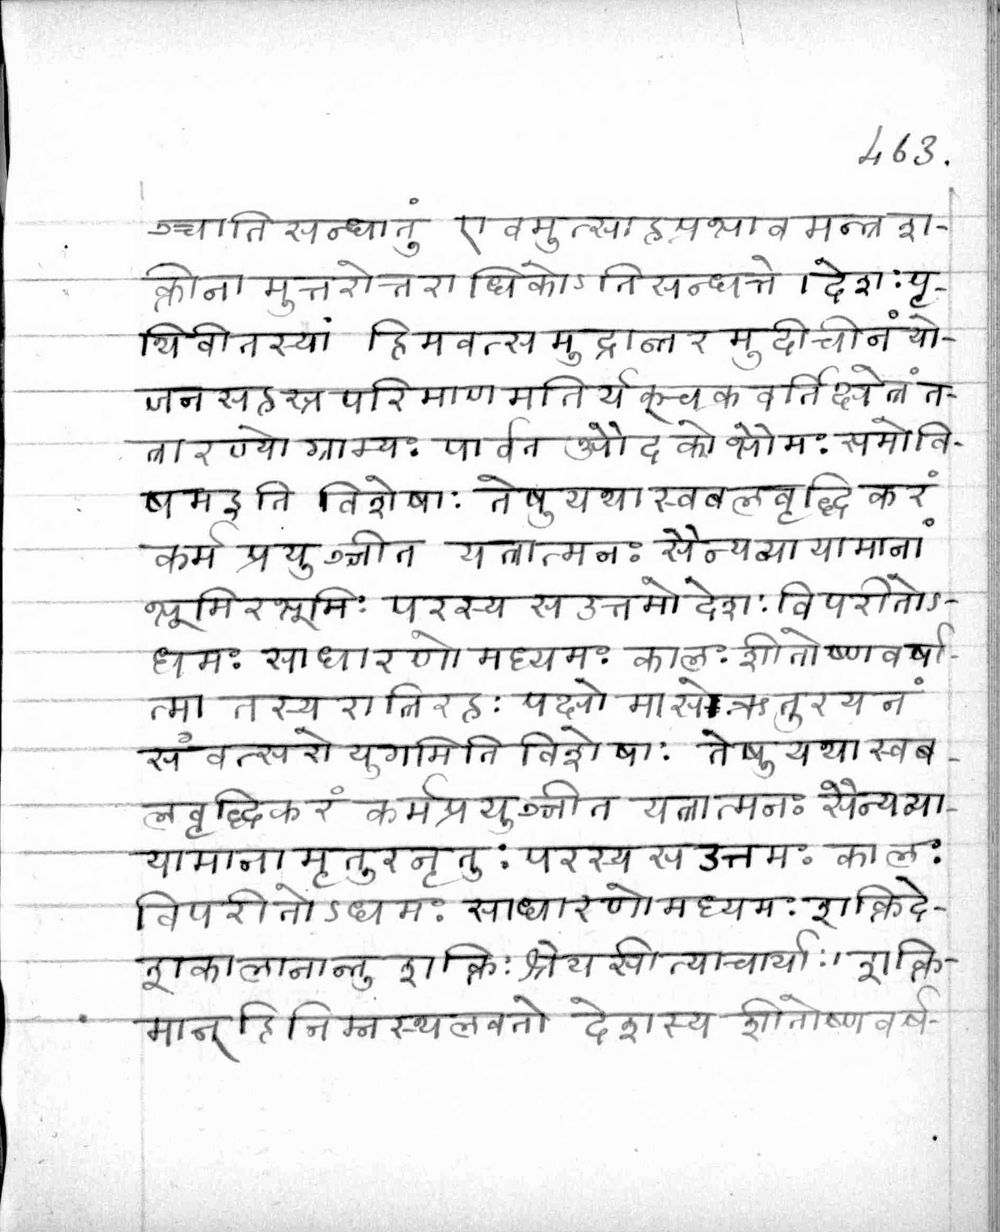 463.
ञ्चातिसन्धातुं एवमुत्साहप्रभावमन्त्रश-
क्तीनामुत्तरोत्तराधिकोऽतिसन्धत्ते। देशः पृ-
थिवी तस्यां हिमवत्समुद्रान्तरमुदीचीनं यो-
जनसहस्रपरिमाणमतिर्यक्चक्रवर्तिक्षेत्रं त-
त्रारण्यो ग्राम्यः पार्वत औदको भौमः समो वि-
षम इति विशेषाः तेषु यथास्वबलवृद्धिकरं
कर्म प्रयुञ्जीत यत्रात्मनः सैन्यव्यायामानां
भूमिरभूमिः परस्य स उत्तमो देशः विपरीतोऽ-
धमः साधारणो मध्यमः कालः शीतोष्णवर्षा-
त्मा तस्य रात्रिरहः पक्षो मासो ऋतुरयनं
संवत्सरो युगमिति विशेषाः तेषु यथास्वब-
लवृद्धिकरं कर्म प्रयुञ्जीत यत्रात्मनः सैन्यव्या-
यामानामृतुरनृतुः परस्य स उत्तमः कालः
विपरीतोऽधमः साधारणो मध्यमः शक्तिदे-
शकालानान्तु शक्तिः श्रेयसीत्याचार्याः। शक्ति-
मान् हि निम्नस्थलवतो देशस्य शीतोष्णवर्ष-